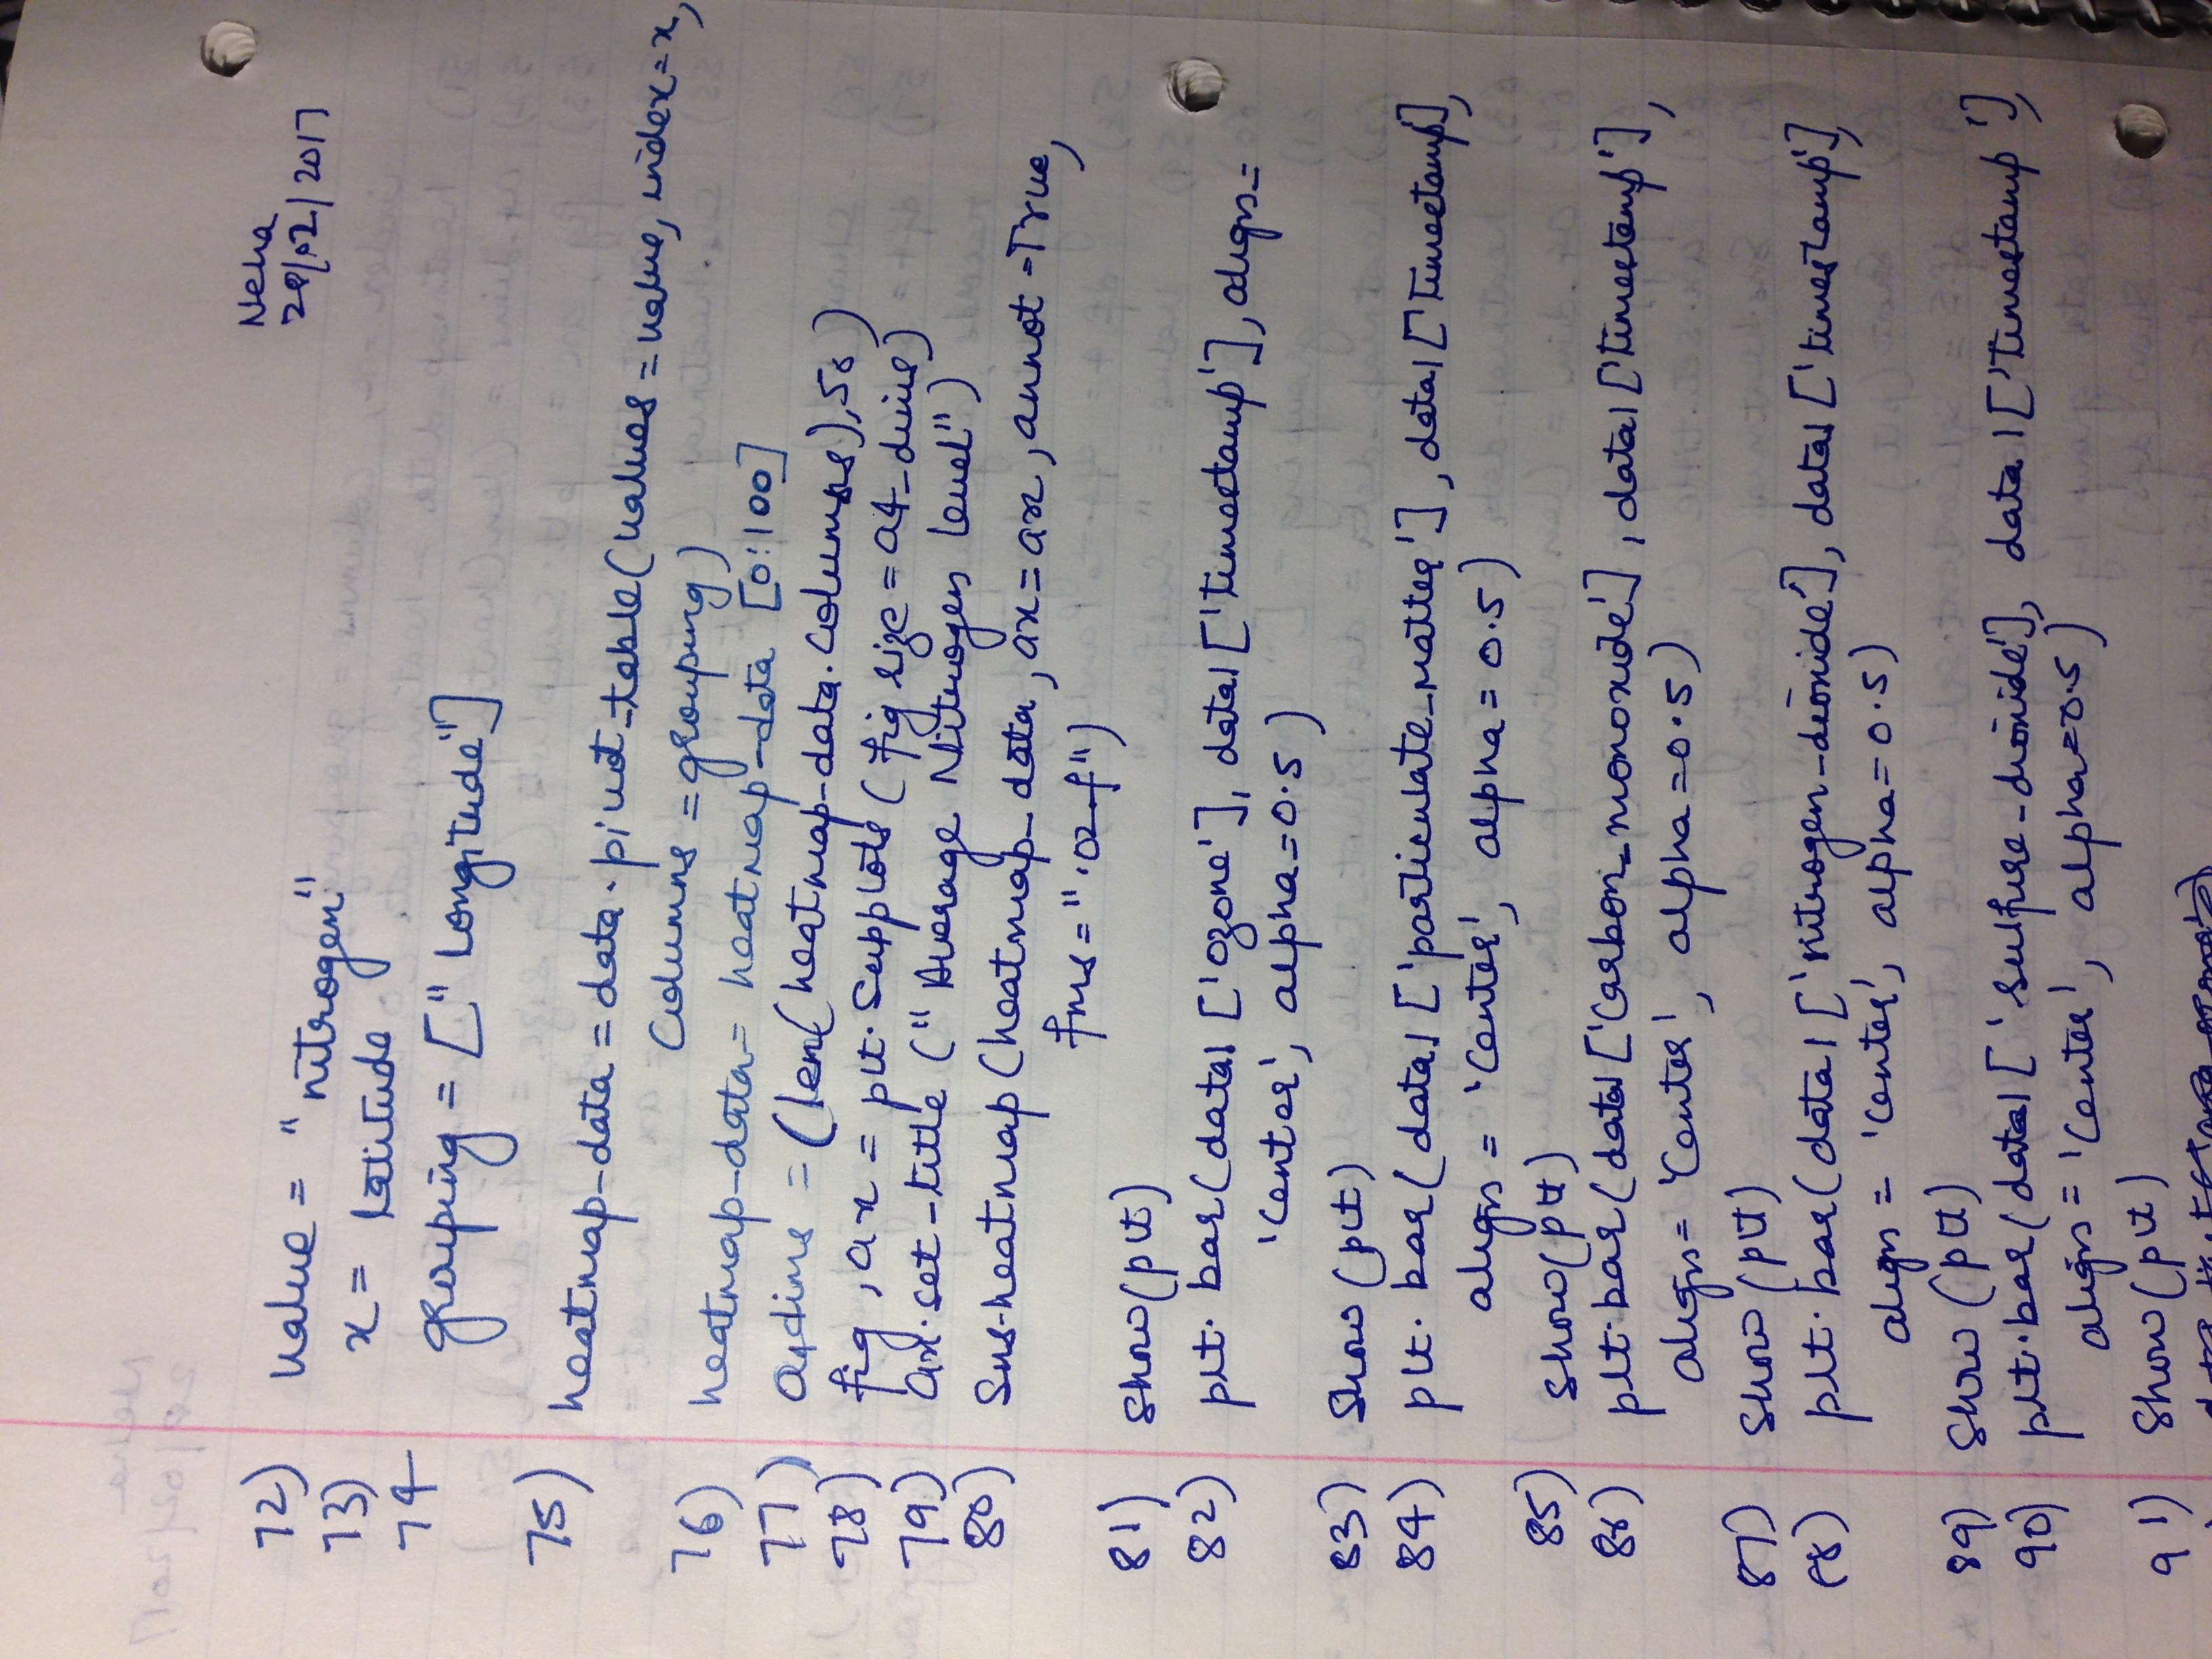 Neha
28/02/2017
72) value = "nitrogen"
73) x = latitude
74 grouping = ["Longitude"]
75) heatmap_data = data.pivot_table(values = value, index = x,
Columns = grouping)
76) heatmap_data = heatmap_data [0:100]
77) a4dims = (len(heatmap_data.columns), 50)
78) fig, ax = plt.Supplots (figsize = a4_dims)
79) ax.set_title ("Average Nitrogen level")
80) Sns.heatmap (heatmap_data, ax = ax, annot = True,
fms = ".02f")
81) Show(plt)
82) plt.bar(data1['ozone'], data1['timestamp'], align =
'Center', alpha = 0.5)
83) Show (plt)
84) plt.bar(data1['particulate_matter'], data1['timestamp],
align = 'Center', alpha = 0.5)
85) Show(plt)
86) plt.bar(data1['Carbon_monoxide'], data1['timestamp'],
align = 'Center', alpha = 0.5)
87) Show (plt)
88) plt.bar(data1['nitrogen_dioxide'], data1['timestamp'],
align = 'Center', alpha = 0.5)
89) Show (plt)
90) plt.bar(data1['sulfure_dioxide'], data1['timestamp'],
align = 'Center', alpha = 0.5)
91) Show (plt)